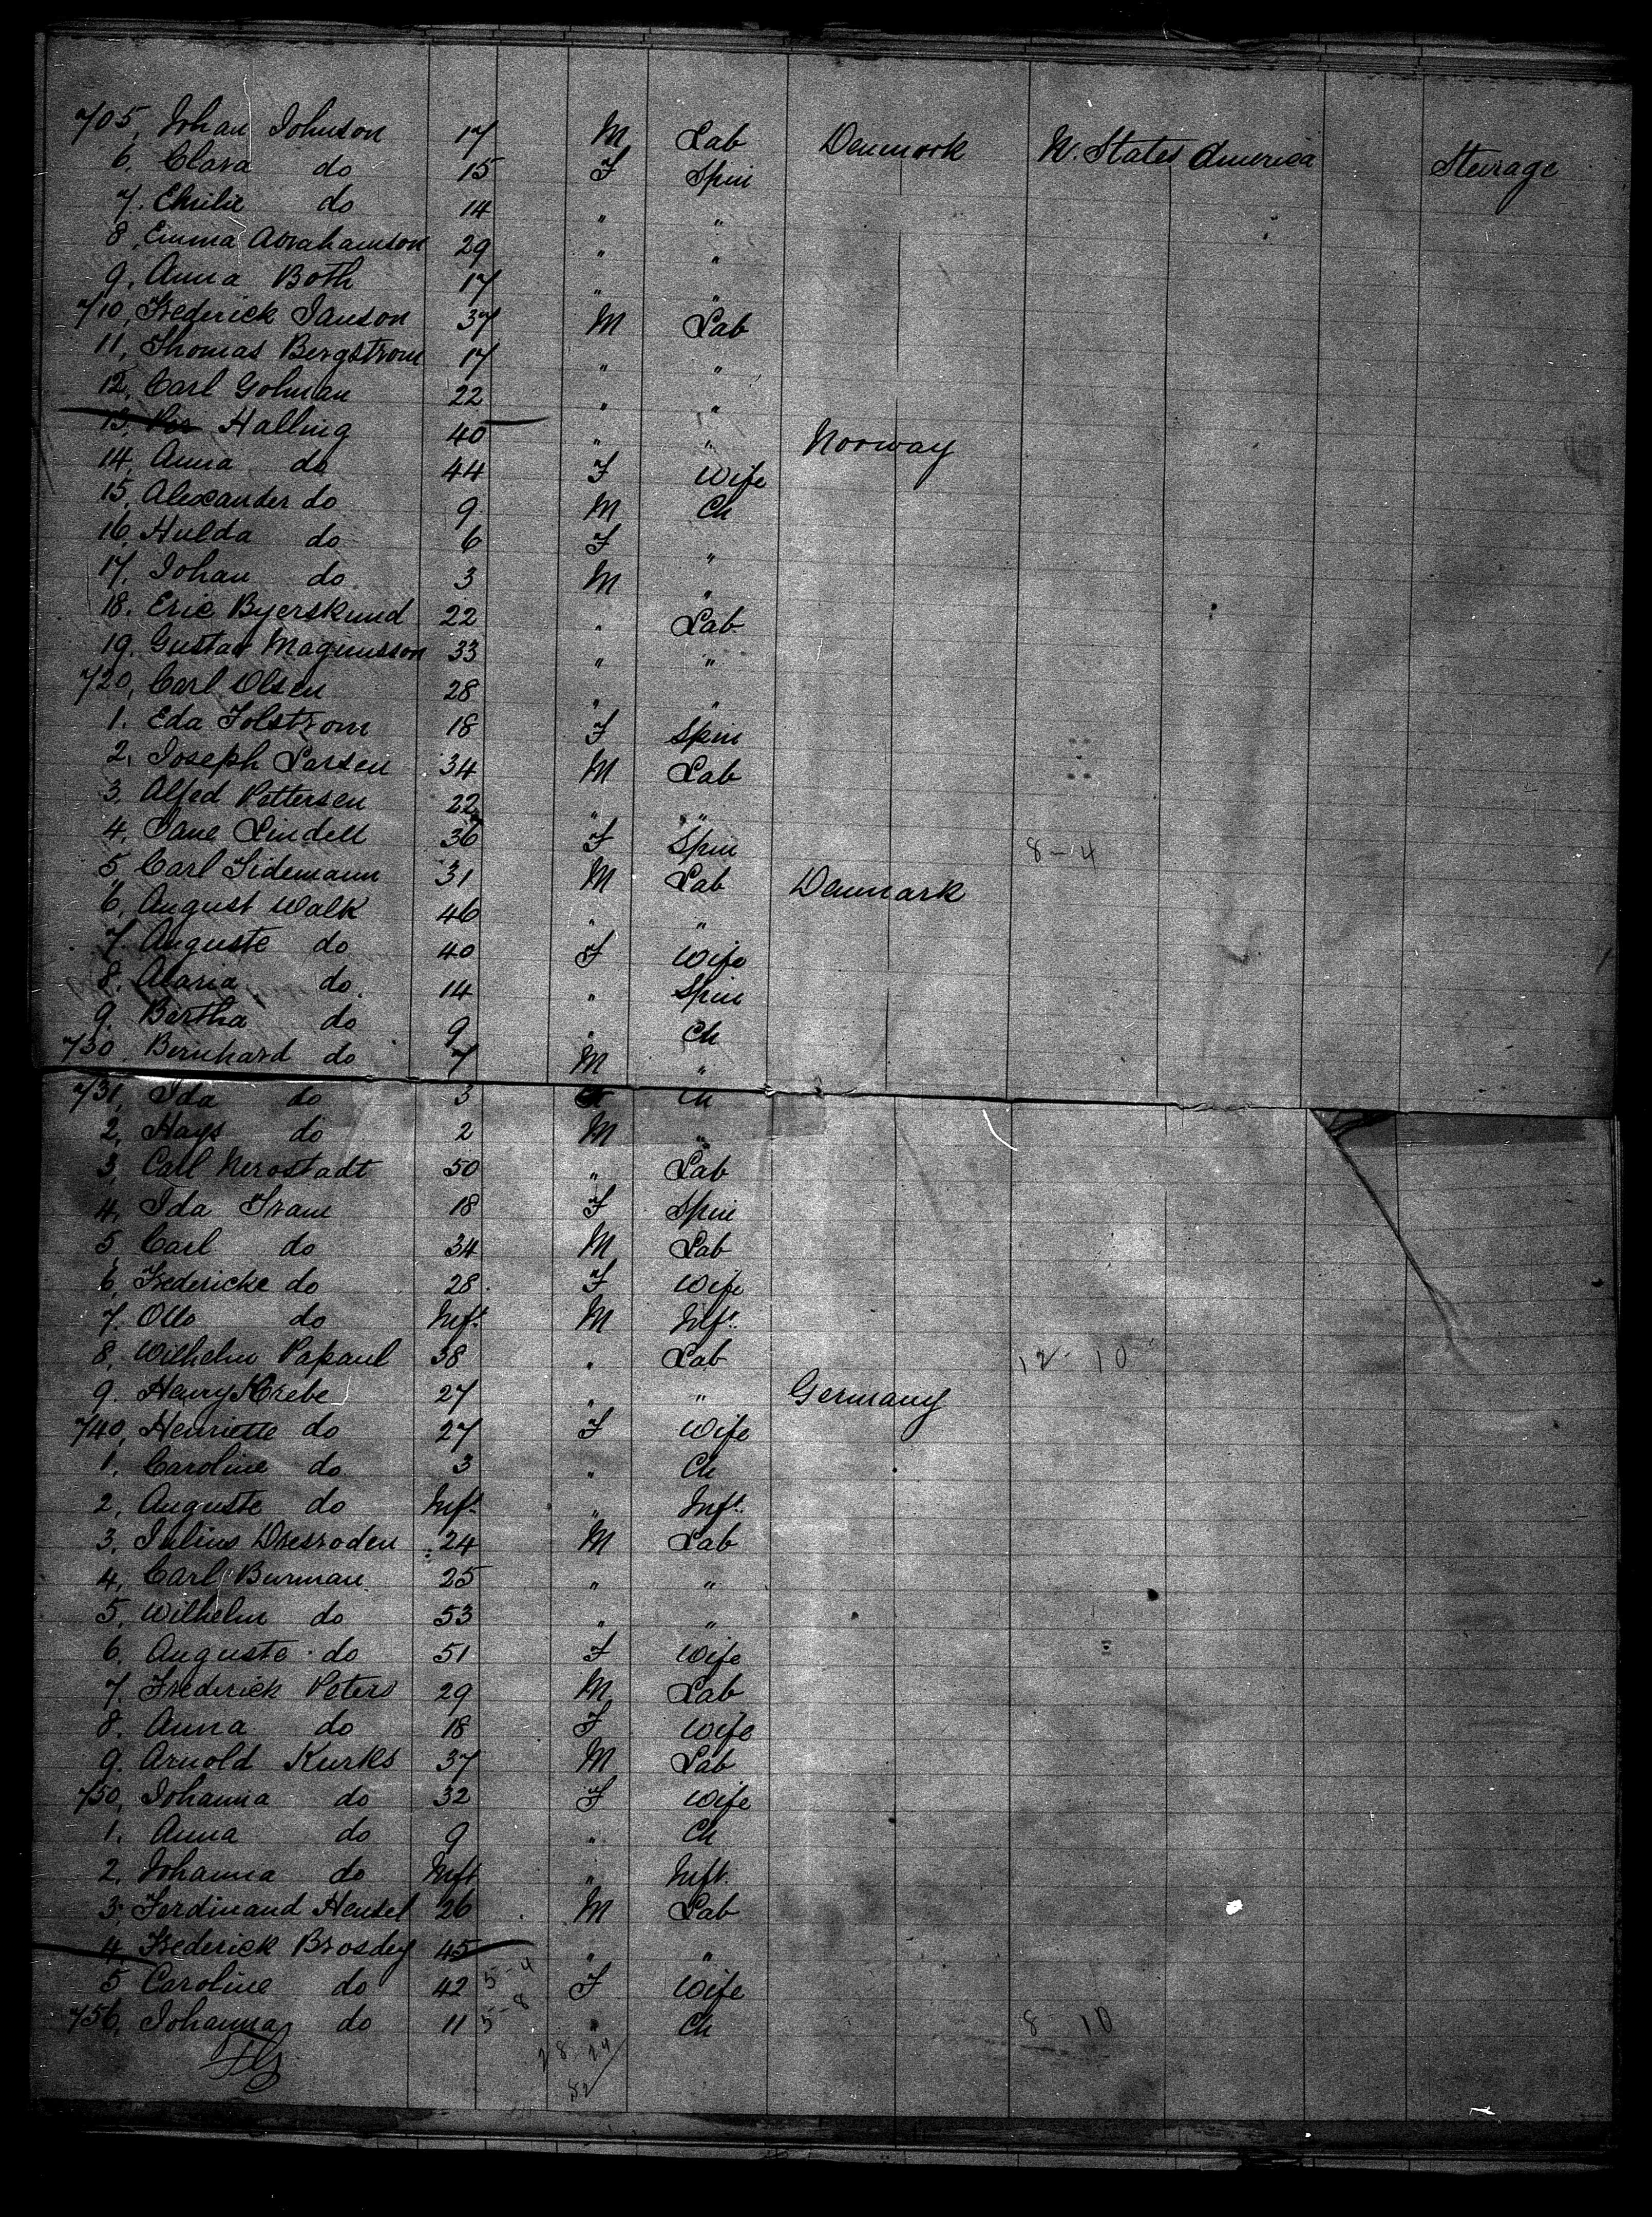 705, Johan Johnson 17 M Lab Denmark U. States America Steerage
6. Clara do 15 F Spin
7. Emilie do 14 " "
8, Emma Abrahamson 29 " "
9, Anna Both 17 " "
710, Frederick Janson 37 M Lab
11, Thomas Bergstrom 17 " "
12, Carl Golman 22 " "
13, Per Halling 40 " " Norway
14, Anna do 44 F Wife
15, Alexander do 9 M Ch
16, Hulda do 6 F "
17, Johan do 3 M "
18. Eric Byerskund 22 " Lab
19. Gustav Magnusson 33 " "
720, Carl Olsen 28 " "
1. Eda Folstrom 18 F Spin
2, Joseph Larsen 34 M Lab
3, Alfed Pettersen 22 " "
4, Jane Lindell 36 F Spin 8-4
5 Carl Sidemann 31 M Lab Denmark
6, August Walk 46 " "
7. Auguste do 40 F Wife
8. Maria do 14 " Spin
9. Bertha do 9 " Ch
730. Bernhard do 7 M "
731, Ida do 3 F Ch
2, Hays do 2 M "
3, Carl Nerostadt 50 " Lab
4, Ida Fram 18 F Spin
5, Carl do 34 M Lab
6, Fredericke do 28. F Wife
7. Otto do Inft. M Inft.
8, Wilhelm Papaul 38 " Lab 12-10
9. Henry Krebe 27 " " Germany
740, Henriette do 27 F Wife
1, Caroline do 3 " Ch
2, Auguste do Inft. " Inft.
3, Julius Dresroden 24 M Lab
4, Carl Burman 25 " "
5, Wilhelm do 53 " "
6, Auguste do 51 F Wife
7. Frederick Peters 29 M Lab
8. Anna do 18 F Wife
9. Arnold Kurks 37 M Lab
750, Johanna do 32 F Wife
1. Anna do 9 " Ch
2. Johanna do Inft " Inft.
3, Ferdinand Hensel 26 M Lab
4, Frederick Brosdey 45 " "
5 Caroline do 42 5-4 F Wife
756, Johanna do 11 5-8 " Ch 8 10
28-24
52